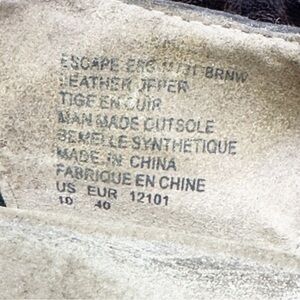 ESCAPE BRNW
LEATHER UPPER
TIGE EN CUIR
MAN MADE OUTSOLE
SEMELLE SYNTHETIQUE
MADE IN CHINA
FABRIQUE EN CHINE
US EUR 12101
10 40